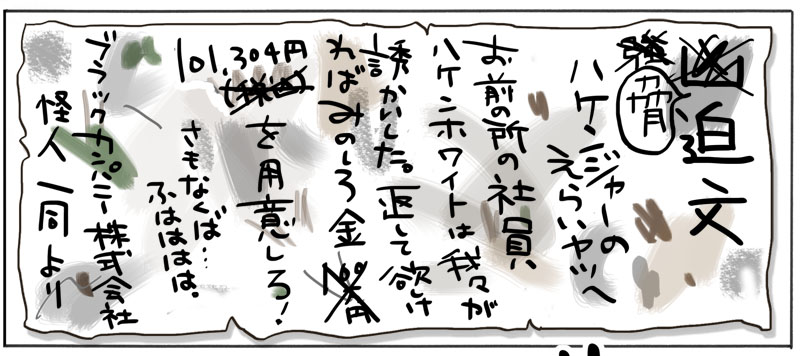 迫文
脅
ハケンジャーの
えらいヤツへ
お前の所の社員、
ハケンホワイトは我々が
誘かいした。返して欲しけ
ればみのしろ金
101,304円
を用意しろ!
さもなくば…
ふはははは。
ブラックカンパニー株式会社
怪人一同より